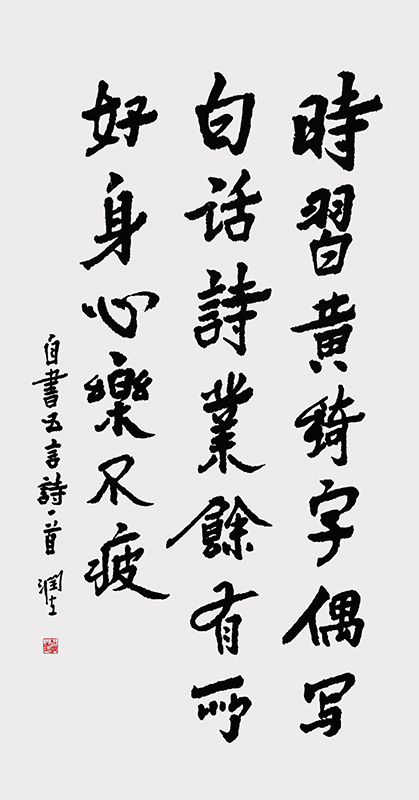 時習黄綺字偶写
白話詩業餘有所
好身心樂不疲
自書五言詩一首 潤